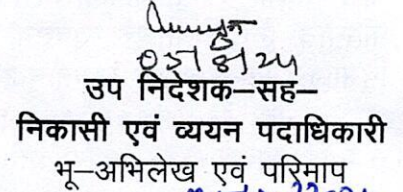 05/8/24
उप निदेशक–सह–
निकासी एवं व्ययन पदाधिकारी
भू–अभिलेख एवं परिमाप